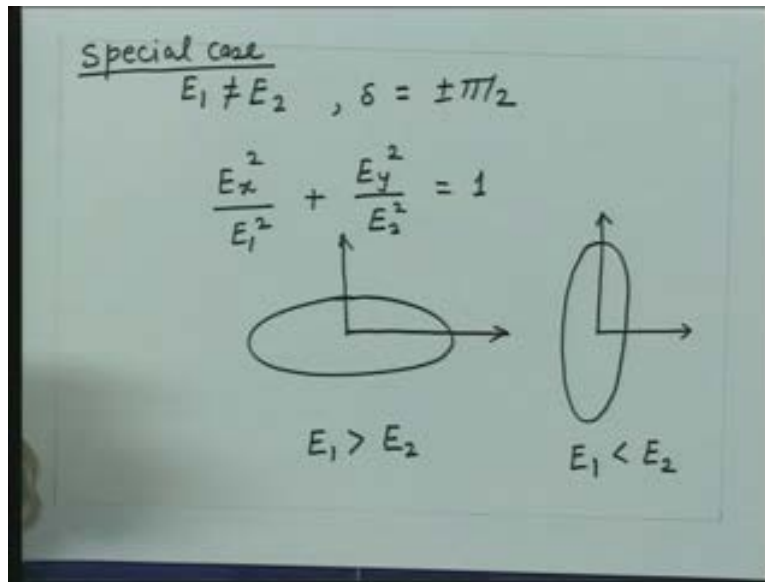 Special case
E₁ ≠ E₂ , δ = ±π/2
Eₓ²/E₁² + E_y²/E₂² = 1
E₁ > E₂
E₁ < E₂